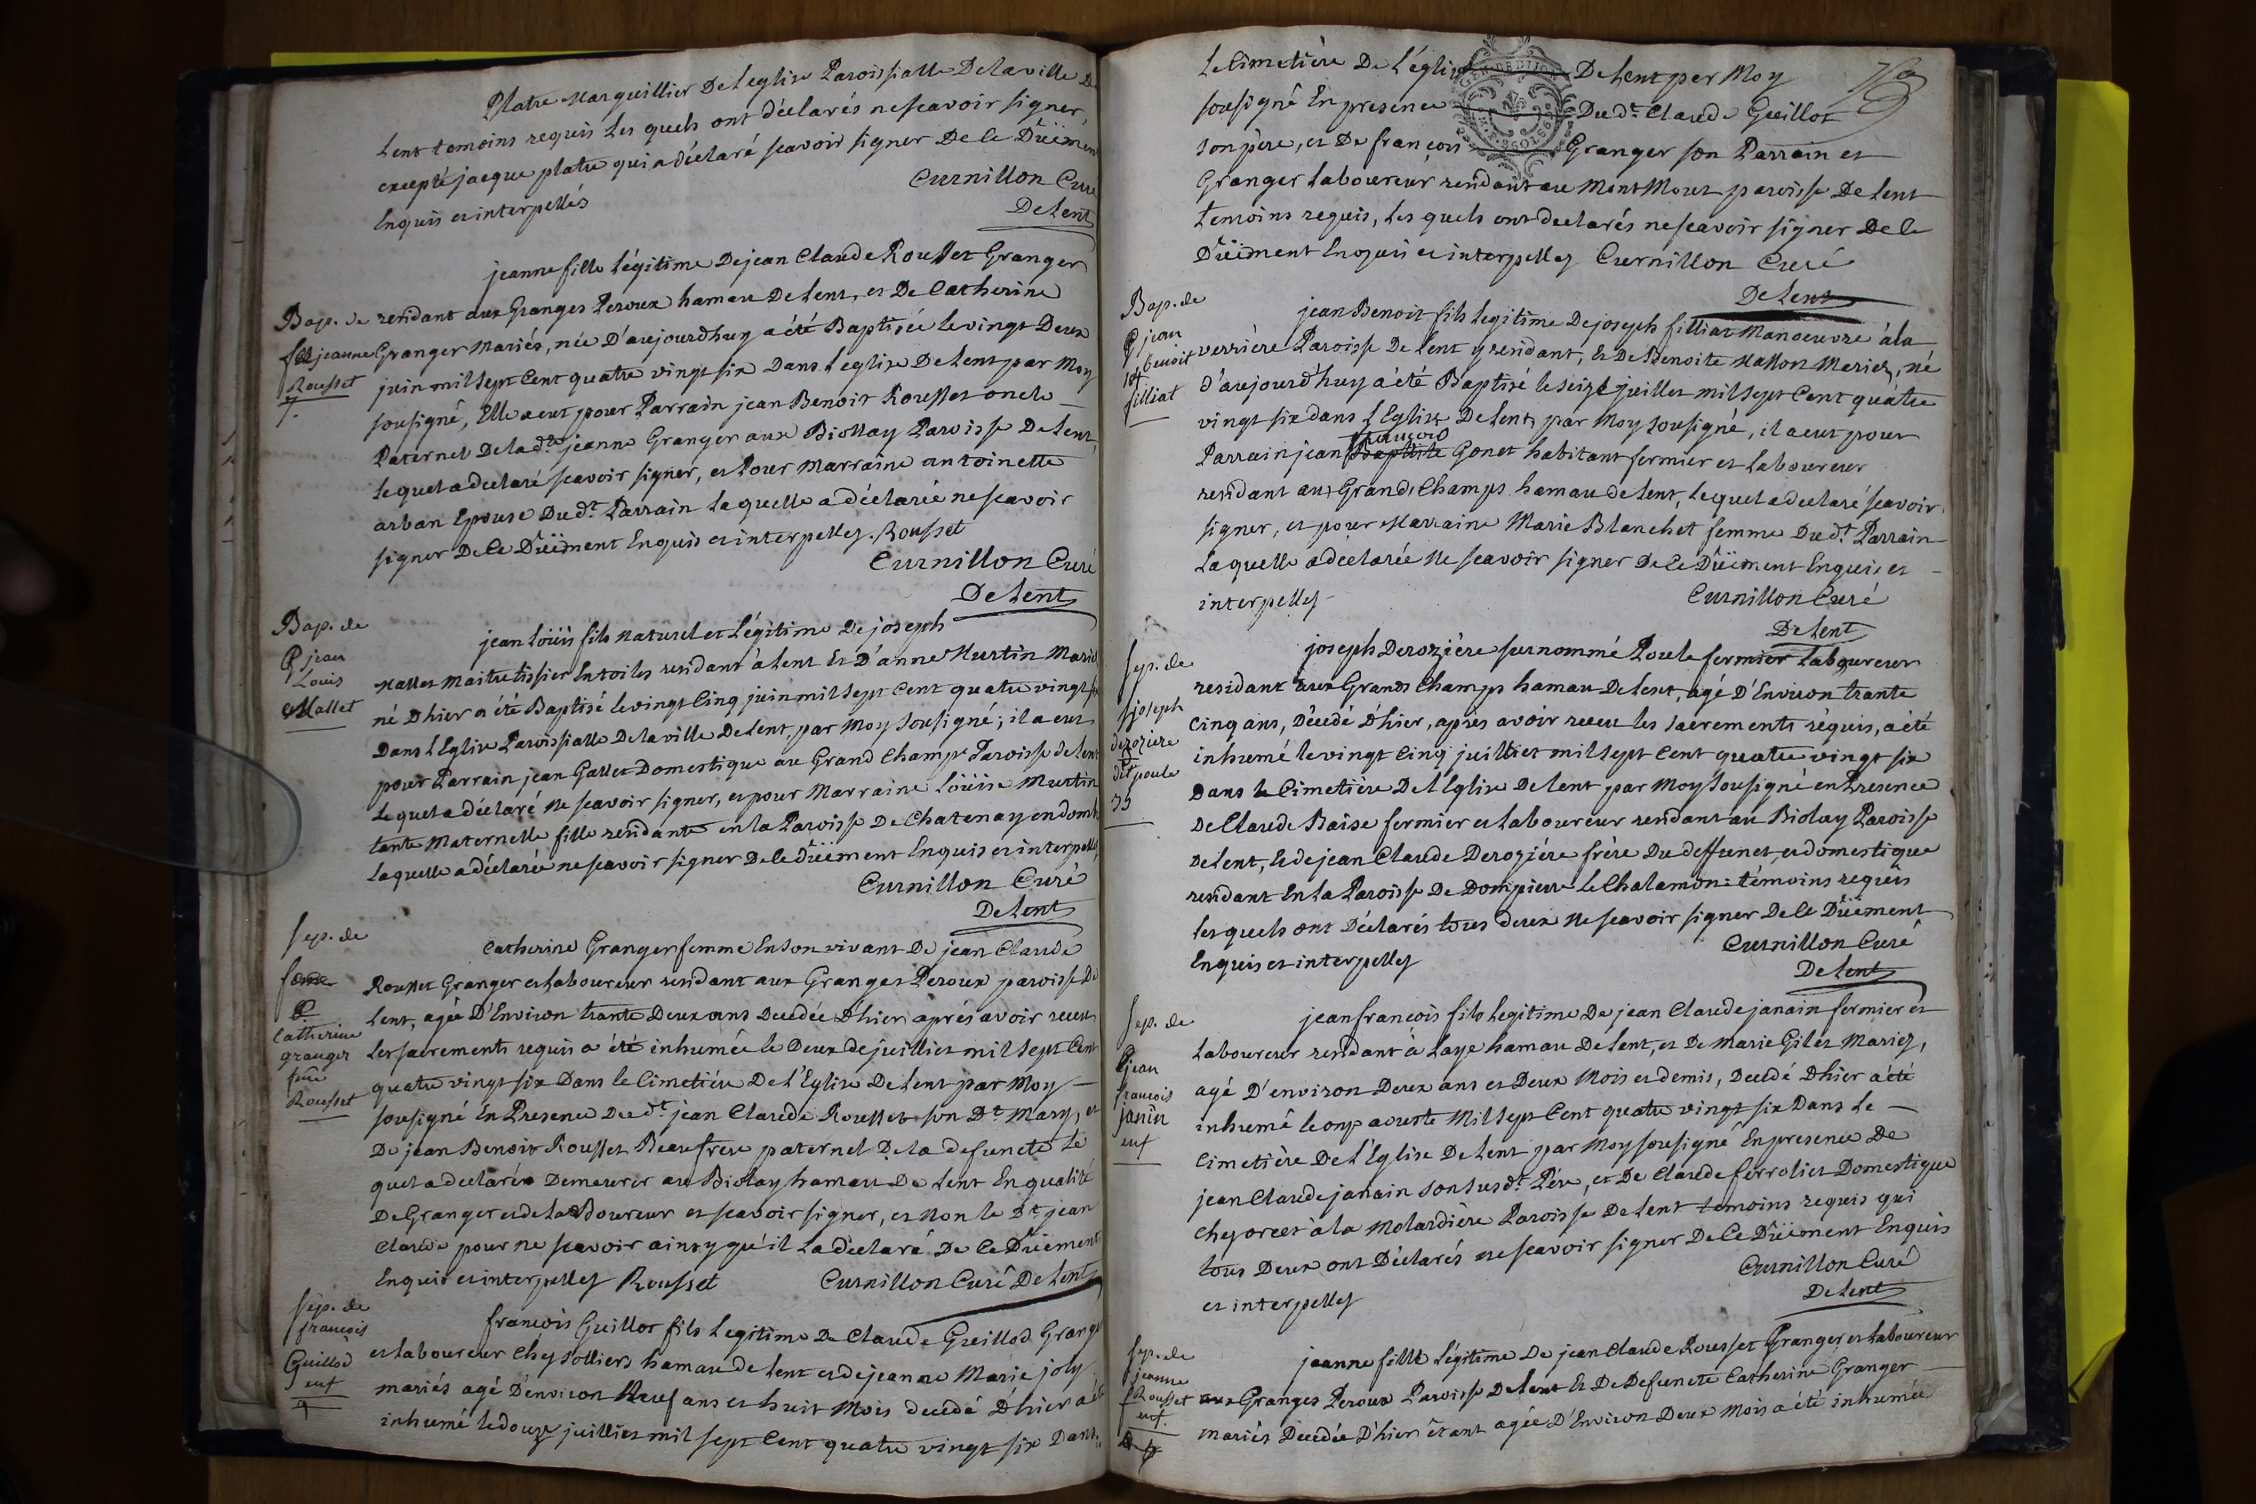 Platre Marguillier De Leglise Paroissialle De la ville De
Lent temoins requis Les quels ont déclarés ne scavoir signer,
excepté jacque platre qui a déclaré scavoir signer De Ce Düement
Enquis et interpellés
Curnillon Curé
De Lent
jeanne fille Légitime De jean Claude Rousset Granger
Bap. de
jeanne
Rousset
residant aux Granges Peroux hamau De Lent, et De Catherine
Granger Mariés, née D'aujourdhuy a été Baptisée le vingt Deux
juin mil sept Cent quatre vingt six Dans Leglise De Lent par Moy
sousigné, Elle a eut pour Parrain jean Benoit Rousset oncle
Paternel De la dte jeanne Granger aux Biollay Paroisse De Lent,
Lequel a declaré scavoir signer, et Pour Marraine antoinette
arban Epouse Du dt Parrain Laquelle a déclarée ne scavoir
signer De Ce Düement Enquis et interpelles. Rousset
Curnillon Curé
De Lent
Bap. de
jean
Louis
Mallet
jean Loüis fils naturel et Légitime De joseph
Mallet Maitre tissier En toiles residant à Lent Et D'anne Murtin Mariés
né Dhier a été Baptisé le vingt Cinq juin mil Sept Cent quatre vingt six
Dans L'Eglise Paroissialle De la ville De Lent, par Moy Sousigné; il a eut
pour Parrain jean Gallet Domestique au Grand Champs Paroisse de Lent
Lequel a déclaré Ne scavoir signer, et pour Marraine Loüise Murtin
tante Maternelle fille residante en la Paroisse De Chatenay en domb
Laquelle a déclarée ne scavoir signer De Ce düement Enquis et interpellés
Curnillon Curé
De Lent
Sep. de
Catherine
granger
fme
Rousset
Catherine Granger femme En son vivant De jean Claude
Rousset Granger et Laboureur residant aux Granges Peroux paroisse De
Lent, agée D'Environ trante Deux ans Decedée Dhier après avoir receu
Les sacrements requis a été inhumée le Deux de juilliet mil Sept Cent
quatre vingt six Dans le Cimetière De L'Eglise De Lent par Moy
sousigné En Presence Du dt jean Claude Rousset son Dt Mary, et
De jean Benoit Rousset Beaufrere paternel De la defuncte Le
quel a declaré Demeurer au Biolay hamau De Lent En qualité
De Granger et de Laboureur et scavoir signer, et Non le Dt jean
Claude pour ne scavoir ainsy qu'il La déclaré De Ce Düement
Enquis et interpelles Rousset
Curnillon Curé De Lent
Sep. de
francois
Guillod
enf
9
francois Guillot fils Legitime De Claude Guillod Granger
et Laboureur Chés Solliers hamau de Lent et de jeanne Marie joly
mariés agé D'environ Neuf ans et huit Mois decedé D'hier a été
inhumé le douze juilliet mil sept Cent quatre vingt six Dans
Le Cimetière De L'église De Lent par Moy
sousigné En presence Du dt Claude Guillot
son père, et De françois Granger son Parrain et
Granger Laboureur residant au Mont Mour paroisse De Lent
temoins requis, Les quels ont declarés ne scavoir signer De Ce
Düement Enquis et interpelles Curnillon Curé
De Lent
Bap. de
jean
benoit
filliat
jean Benoit fils Legitime De joseph filliat Manoeuvre à la
verriere Paroisse De Lent y residant, Et De Benoite Mallon Mariés, né
d'aujourd'huy a été Baptisé le seize juillet mil Sept Cent quatre
vingt six dans L'Eglise De Lent, par Moy sousigné, il a eut pour
françois
Parrain jean Baptiste Gonet habitant fermier et Laboureur
residant aux Grands Champs hamau de Lent, Lequel a declaré scavoir
signer, et pour Marraine Marie Blanchet femme Du dt Parrain
Laquelle a déclarée Ne scavoir signer De Ce Düement Enquis et
interpelles
Curnillon Curé
De Lent
Sep. de
joseph
deroziere
dit poule
35
joseph Deroziére surnommé Poule fermier Laboureur
residant aux Grands Champs hamau De Lent, agé D'Environ trante
Cinq ans, Décédé D'hier, après avoir receu les sacrements réquis, a été
inhumé le vingt Cinq juilliet mil sept Cent quatre vingt six
Dans le Cimetière De L'Eglise De Lent par Moy Sousigné en Presence
De Claude Baise fermier et Laboureur residant au Biolay Paroisse
De Lent, Et de jean Claude Deroziére frère Du deffunct, et domestique
residant En la Paroisse De Dompierre le Chalamon: témoins requis
Les quels ont Déclarés tous deux Ne scavoir signer De Ce Düement
Enquis et interpelles
Curnillon Curé
De Lent
Sep. de
jean
francois
janin
enf
jean francois fils Legitime De jean Claude janain fermier et
Laboureur residant à Laye hamau De Lent, et De Marie Gilet Mariez,
agé D'environ Deux ans et Deux Mois et demis, Decedé Dhier a été
inhumé le onze aouste Mil Sept Cent quatre vingt six Dans Le
Cimetière De L'Eglise De Lent par Moy sousigné En presence De
jean Claude janain son susdt Père, et De Claude ferroliet Domestique
à la Molardière Paroisse De Lent temoins requis qui
tous Deux ont Déclarés ne scavoir signer De Ce Düement Enquis
et interpelles
Curnillon Curé
De Lent
Sep. de
jeanne
Rousset
enf.
jeanne fille Légitime De jean Claude Rousset Granger et Laboureur
aux Granges Peroux Paroisse De Lent Et De Defuncte Catherine Granger
mariés Decedée D'hier étant agée D'Environ Deux Mois a été inhumée